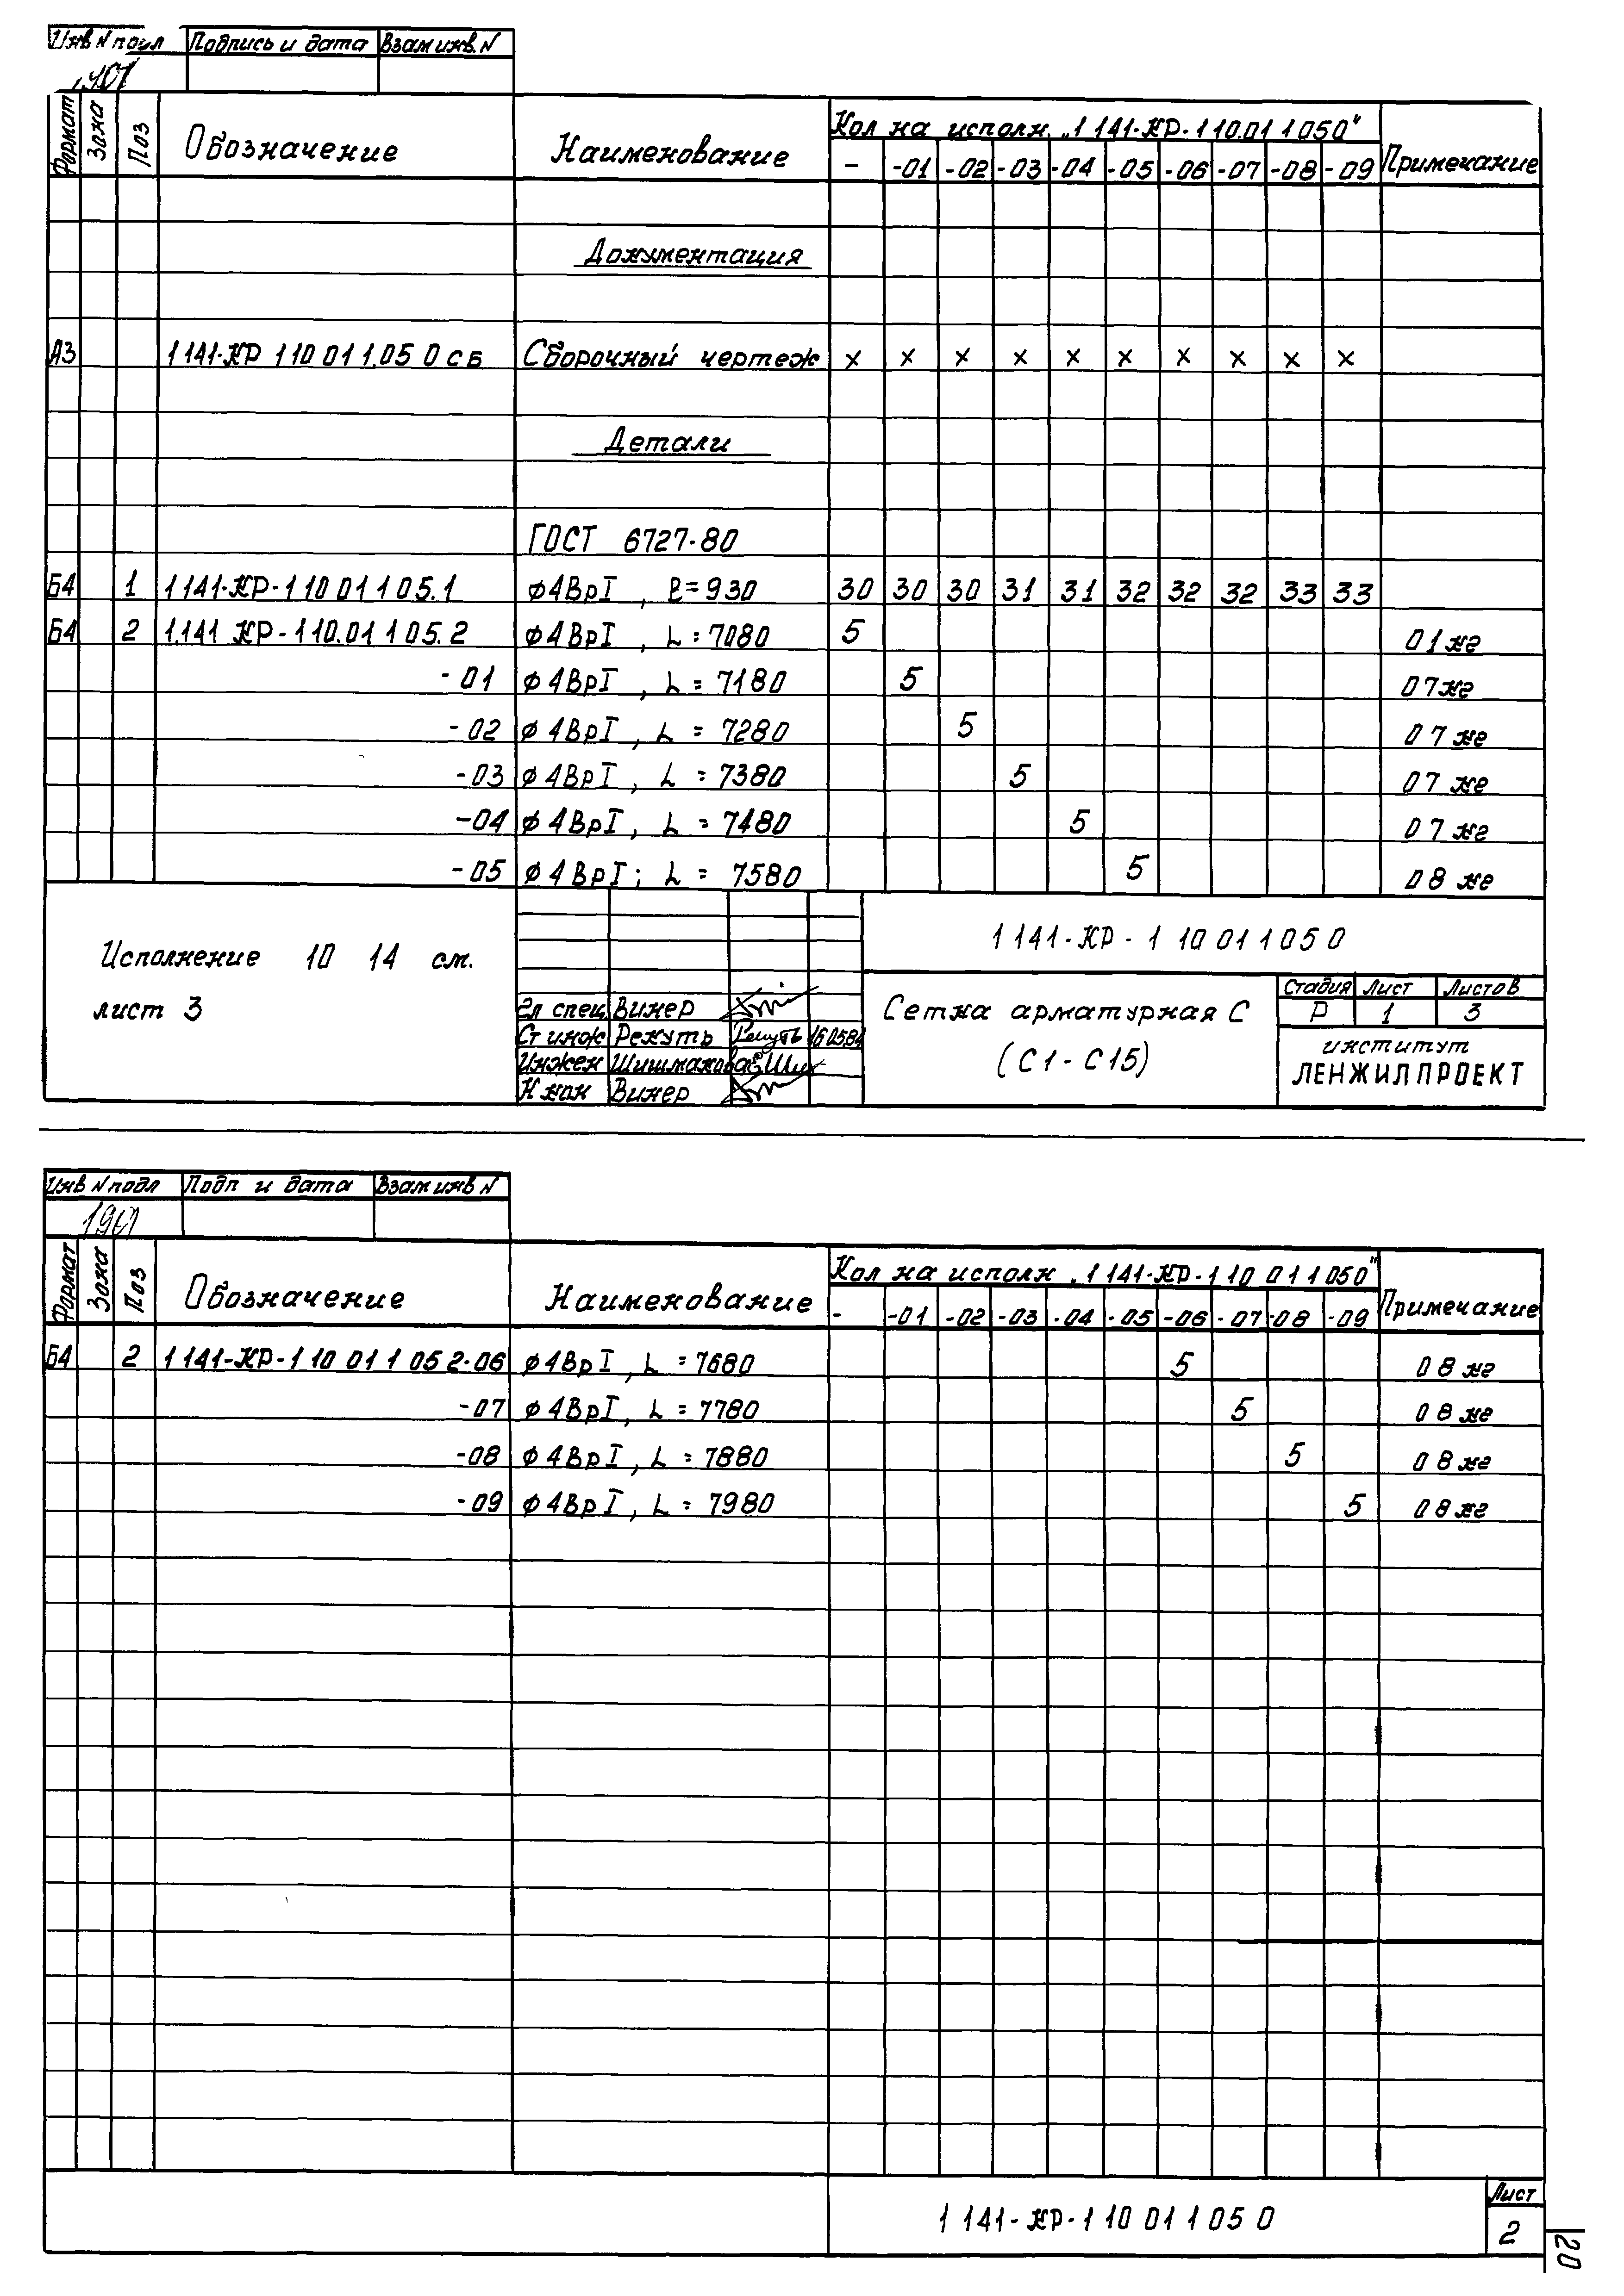 Инв N подл Подпись и дата Взам инв. N
Формат Зона Поз Обозначение Наименование Кол на исполн. „1 141-КР-1 10.01 1 050" Примечание
- -01 -02 -03 -04 -05 -06 -07 -08 -09
Документация
А3 1 141-КР 1 10 01 1.05 0 сб Сборочный чертеж × × × × × × × × × ×
Детали
ГОСТ 6727-80
Б4 1 1 141-КР-1 10 01 1 05.1 ф4ВрI , ℓ=930 30 30 30 31 31 32 32 32 33 33
Б4 2 1.141 КР-1 10.01 1 05.2 ф4ВрI , L=7080 5 0 1 кг
-01 ф4ВрI , L=7180 5 0 7 кг
-02 ф4ВрI , L=7280 5 0 7 кг
-03 ф4ВрI , L=7380 5 0 7 кг
-04 ф4ВрI, L=7480 5 0 7 кг
-05 ф4ВрI; L=7580 5 0 8 кг
Исполнение 10 14 см.
лист 3
1 141-КР-1 10 01 1 05 0
Гл спец. Винер
Ст инж Рекуть 16 05.84
Инжен Шишманова
Н кон Винер
Сетка арматурная С
(С1-С15)
Стадия Лист Листов
Р 1 3
институт
ЛЕНЖИЛПРОЕКТ
Инв N подл Подп и дата Взам инв N
1901
Формат Зона Поз Обозначение Наименование Кол на исполн „1 141-КР-1 10 01 1 050" Примечание
- -01 -02 -03 -04 -05 -06 -07 -08 -09
Б4 2 1 141-КР-1 10 01 1 05 2-06 ф4ВрI , L=7680 5 0 8 кг
-07 ф4ВрI, L=7780 5 0 8 кг
-08 ф4ВрI, L=7880 5 0 8 кг
-09 ф4ВрI, L=7980 5 0 8 кг
1 141-КР-1 10 01 1 05 0
Лист
2
20